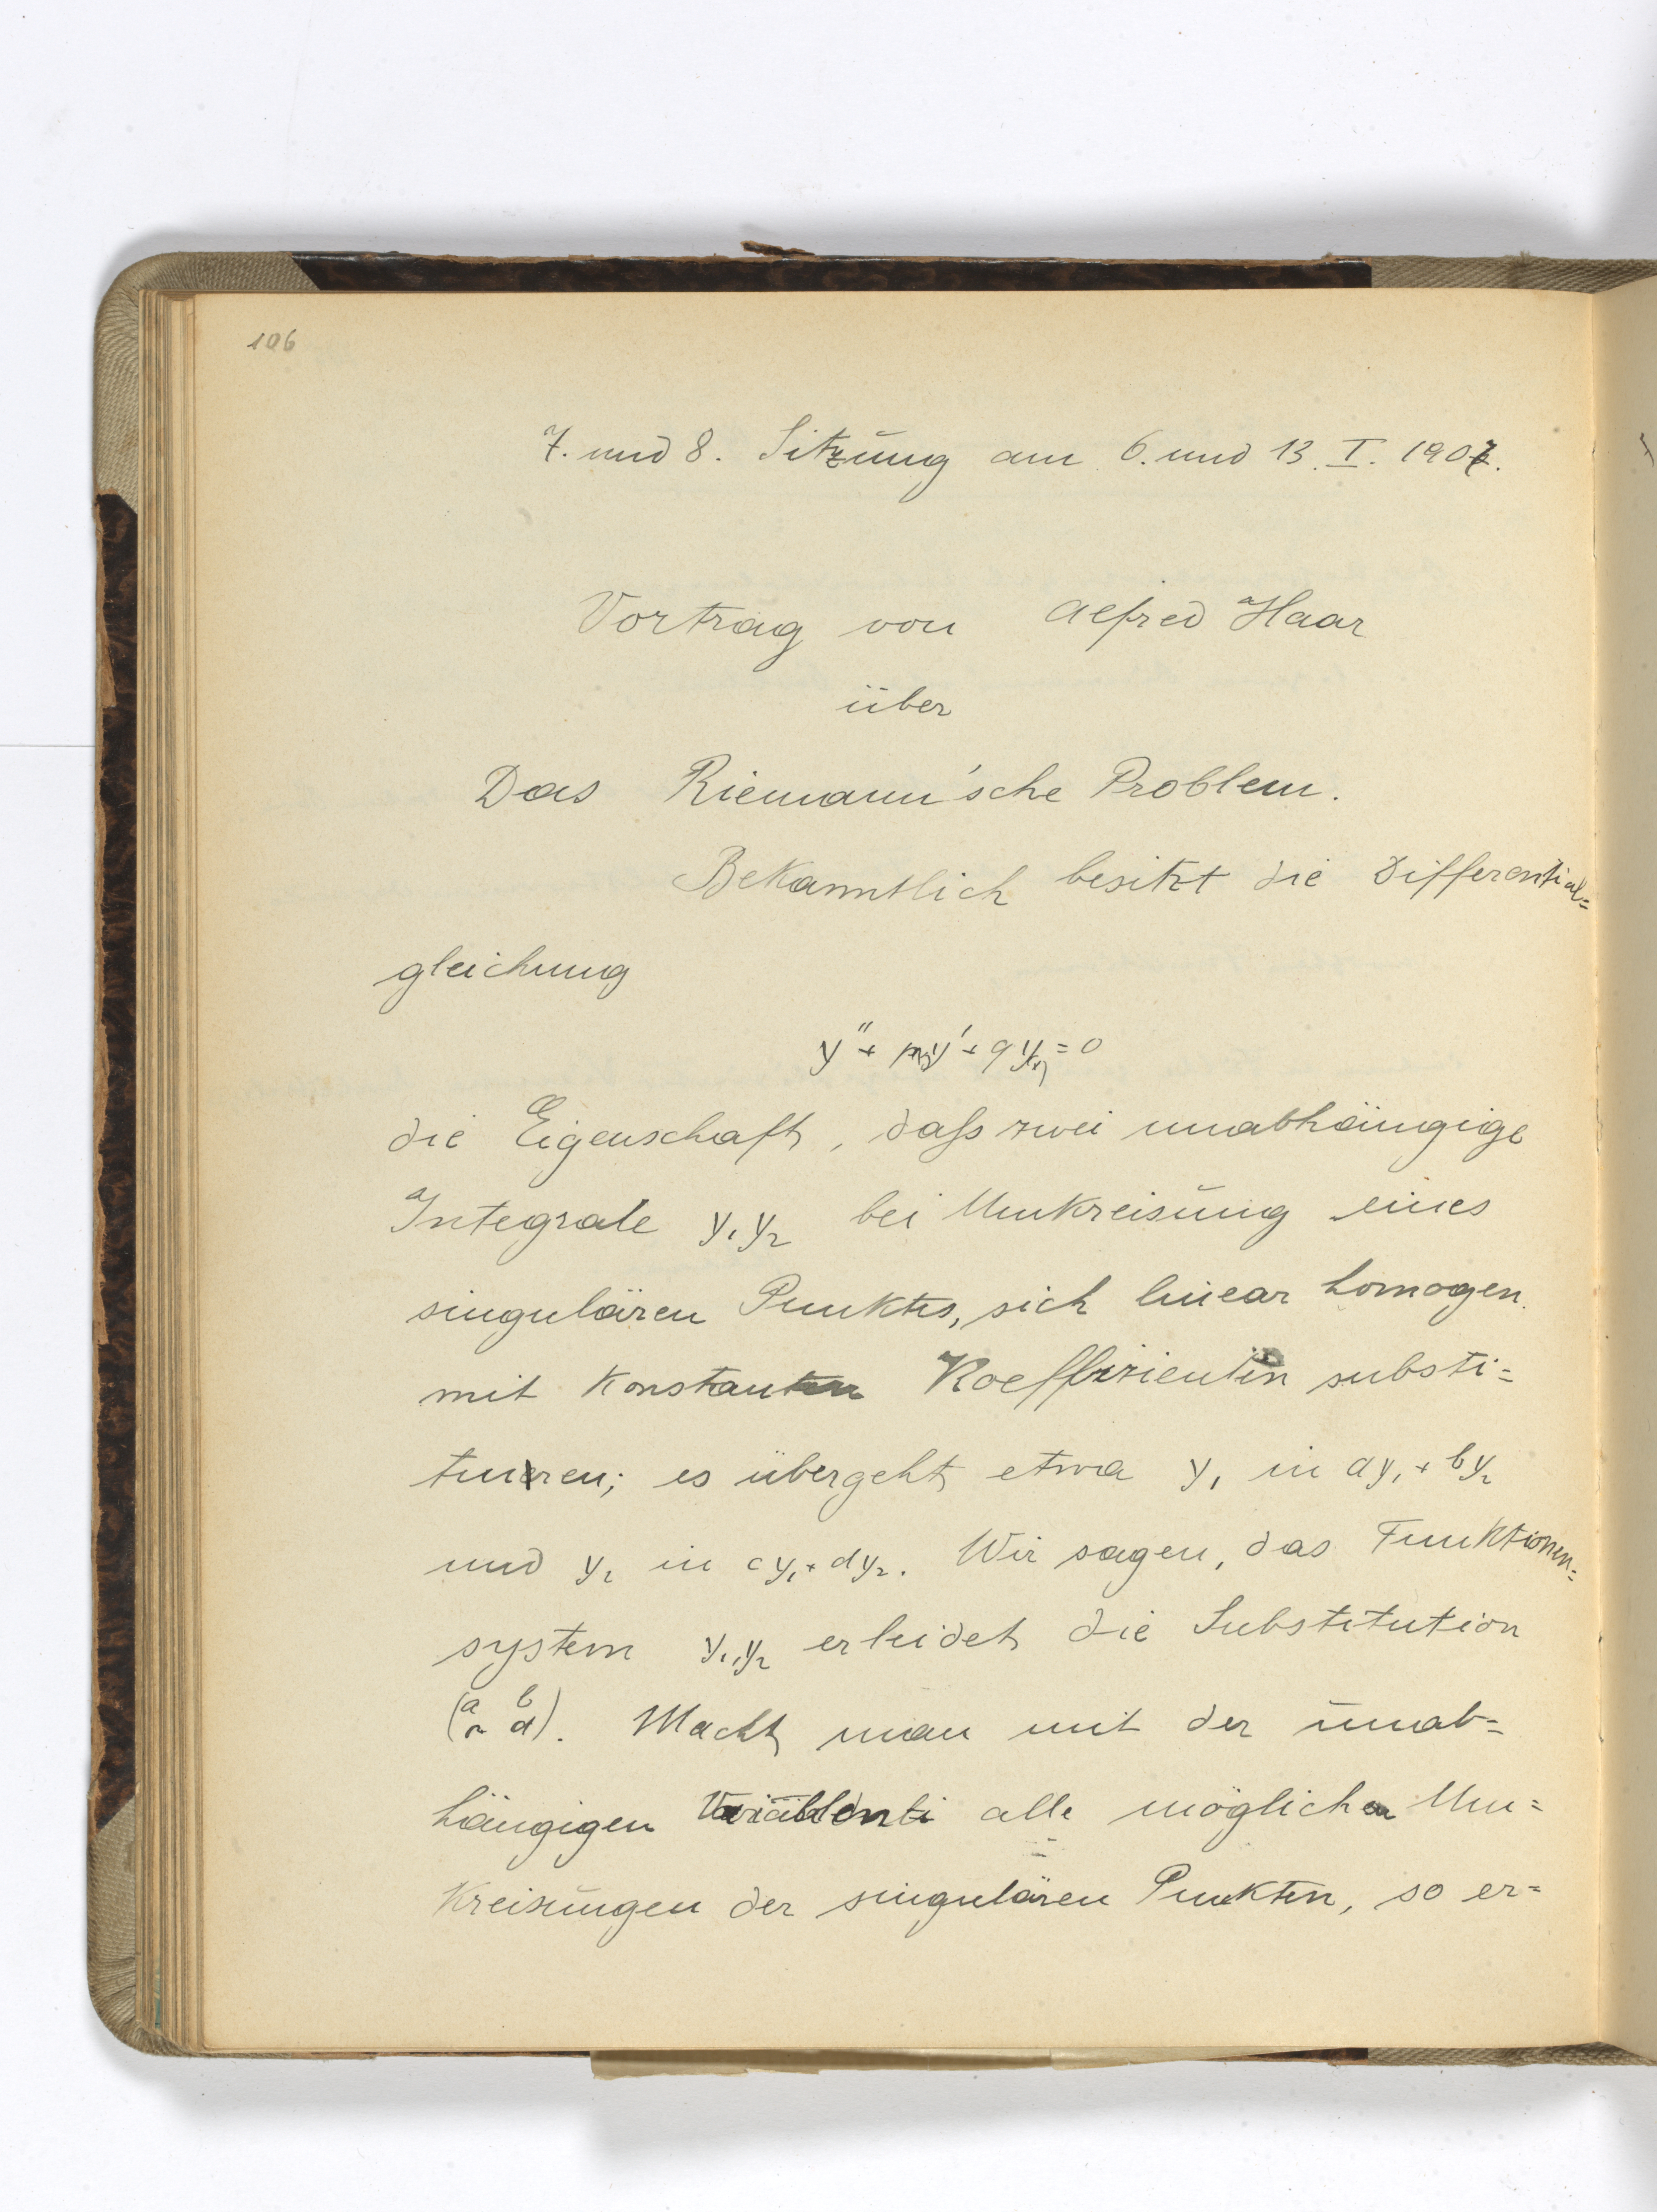 106
7. und 8. Sitzung am 6. und 13. I. 1907.
Vortrag von Alfred Haar
über
Das Riemann'sche Problem.
Bekanntlich besitzt die Differential=
gleichung
y'' + py' + qy = 0
die Eigenschaft, daß zwei unabhängige
Integrale y₁ y₂ bei Umkreisung eines
singulären Punktes, sich linear homogen
mit Konstanten Koeffizienten substi=
tuiren; es übergeht etwa y₁ in ay₁ + by₂
und y₂ in cy₁ + dy₂. Wir sagen, das Funktionen=
system y₁, y₂ erleidet die Substitution
(a b
c d). Macht man mit der unab=
hängigen alle möglichen Um=
kreisungen der singulären Punkten, so er=